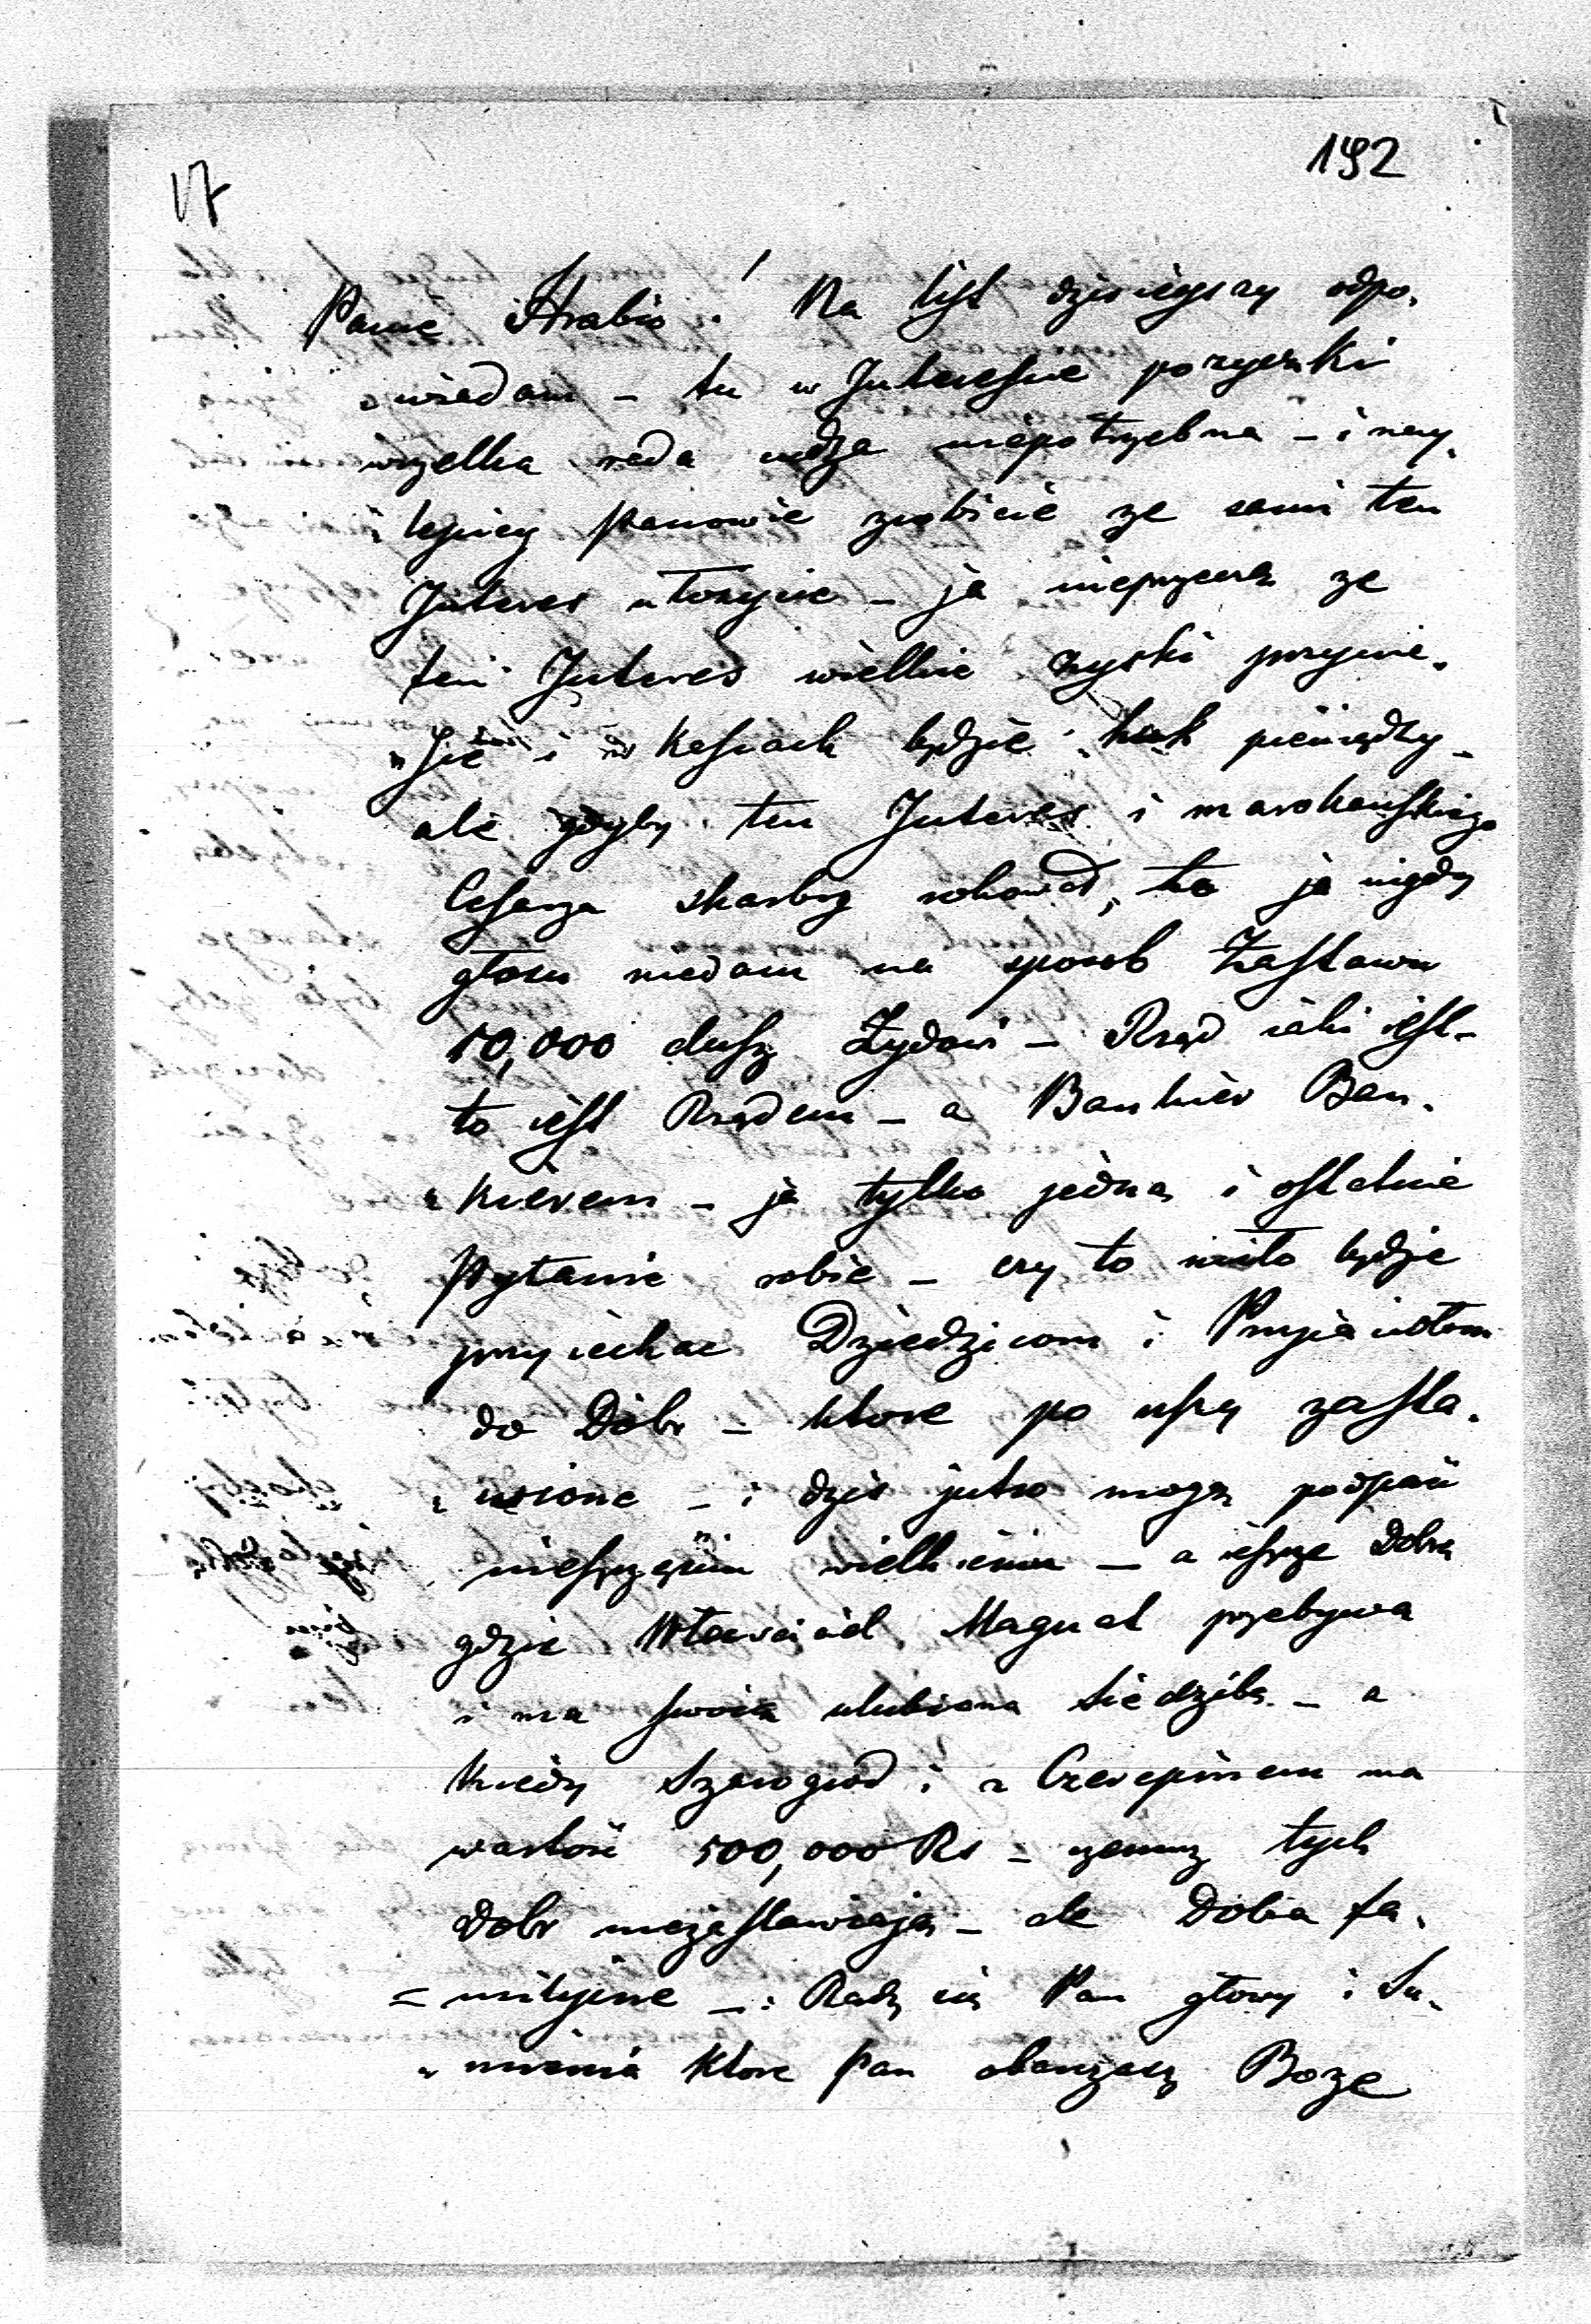 192
17
Panie Hrabio! Na list dzisieyszy odpo„
„wiedam – tu w Interessie pozyczki
wszelka rada cudza niepotrzebna – i nay„
„lepiey Panowie zrobicie ze sami ten
Interes utozycie – ja nieprzeczę ze
ten Interes wielkie zyski przynie„
„sie i w Kassach będzie huk pieniędzy –
ale gdyby ten Interes i marokanskiego
Cesarza skarby rokował, to ja nigdy
głosu niedam na sposob Zastawu
10,000 dusz Zydowi – Rząd iaki iest –
to iest Rządem – a Bankier Ban„
„kierem – ja tylko jedną i ostatnie
Pytanie robie – czy to miło będzie
przyiechac Dziedzicom i Przyiaciołom
do Dobr – ktore po uszy zasta„
„wione – i dzis jutro mogą podpaść
nieszczęsciu wielkiemu – a ieszcze Dobra
gdzie Własciciel Magnat przebywa
i ma swoia ulubiona Siedzibę – a
kiedy Szarogrod i z Czerepinem ma
wartość 500,000 Rs – czemuz tych
Dobr niezastawiają – ale Dobra fa„
= milijne – : Radz się Pan głowy i Su„
„mienia ktore Pan obarczasz Boze